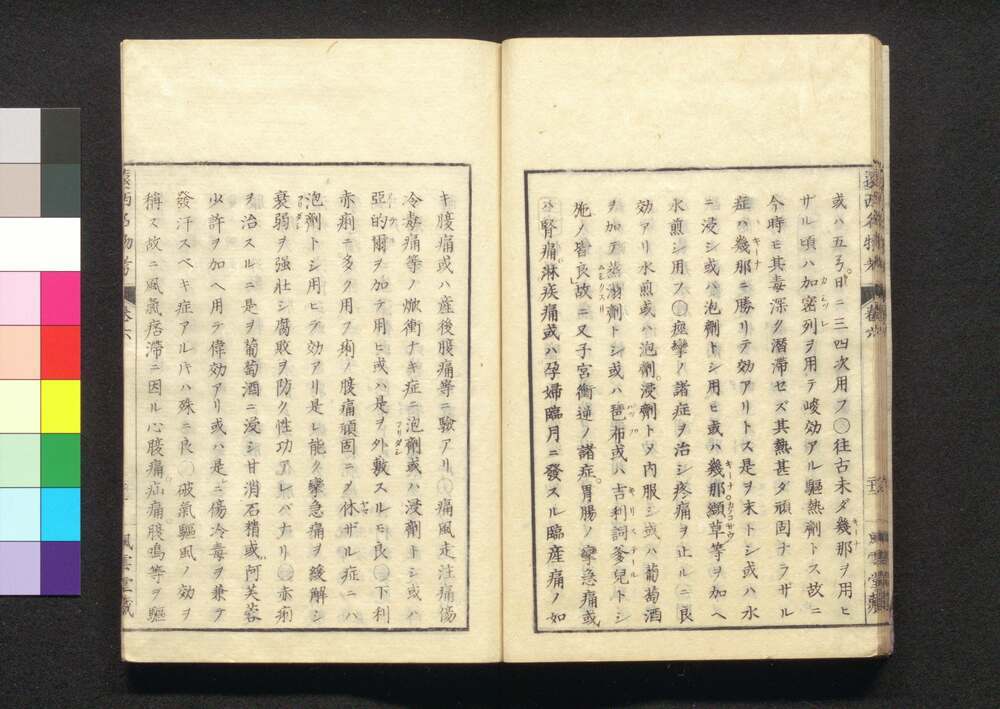 或ハ五六日ニ三四次用フ○往古未ダ幾那ヲ用ヒ
サル頃ハ加密列ヲ用テ峻効アル驅熱劑トス故ニ
今時モ其毒深ク潜滞セズ其熱甚ダ頑固ナラザル
症ハ幾那ニ勝リテ効アリトス是ヲ末トシ或ハ水
ニ浸シ或ハ泡劑トシ用ヒ或ハ幾那纈草等ヲ加ヘ
水煎シ用フ○痙攣ノ諸症ヲ治シ疼痛ヲ止ルニ良
効アリ水煎或ハ泡劑浸劑トシ内服シ或ハ葡萄酒
ヲ加ア蒸溻劑トシ或ハ琶布或ハ吉利詞爹兒トシ
施ノ皆良故ニ又子宮衝逆ノ諸症胃腸ノ攣急痛或
ハ腎痛淋疾痛或ハ孕婦臨月ニ發スル臨産痛ノ如
キ腹痛或ハ産後腹痛等ニ驗アリ○痛風走注痛傷
冷毒痛等ノ焮衝ナキ症ニ泡劑或ハ浸劑トシ或ハ
亞的爾ヲ加テ用ヒ或ハ是ヲ外敷スルモ良○下利
赤痢ニ多ク用フ痢ノ腹痛頑固ニノ休ザル症ニハ
泡劑トシ用ヒテ効アリ是レ能ク攣急痛ヲ緩解シ
衰弱ヲ強壯シ腐敗ヲ防ク性功アレバナリ○赤痢
ヲ治スルニ是ヲ葡萄酒ニ浸シ甘消石精或ハ阿芙蓉
少許ヲ加ヘ用テ偉効アリ或ハ是ニ傷冷毒ヲ兼テ
發汗スベキ症アルキハ殊ニ良○破氣驅風ノ効ヲ
稱ス故ニ風氣痞滞ニ因ル心腹痛疝痛腹鳴等ヲ驅
卷六
風雲堂藏